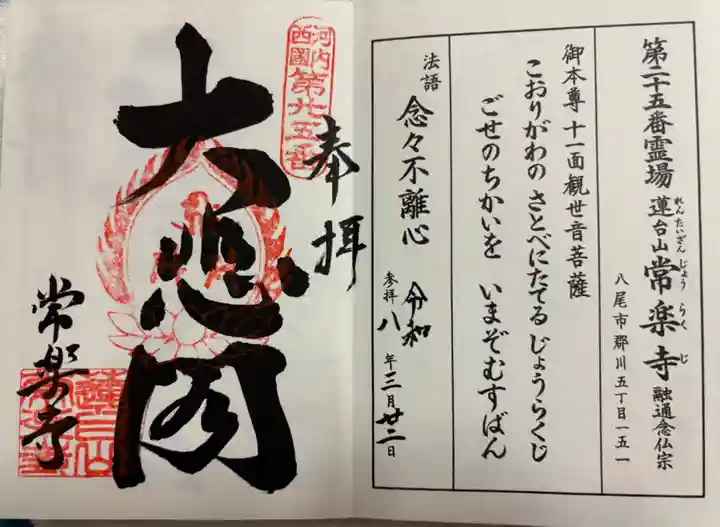 第二十五番霊場 蓮台山 常楽寺 融通念仏宗
れんたいざん じょうらくじ
八尾市郡川五丁目一五一
御本尊 十一面観世音菩薩
こおりがわの さとべにたてる じょうらくじ
ごせのちかいを いまぞむすばん
法語 念々不離心
参拝 令和八年三月廿二日
河内
西國
第廿五番
奉拝
大悲閣
常楽寺